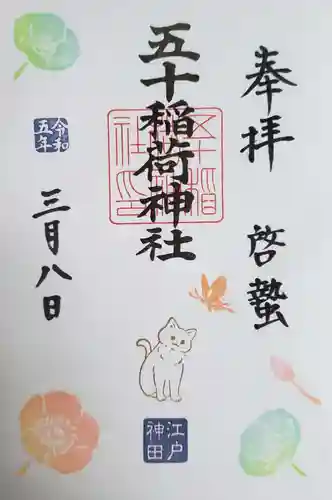 奉拝 啓蟄
五十稲荷神社
令和
五年
三月八日
江戸
神田